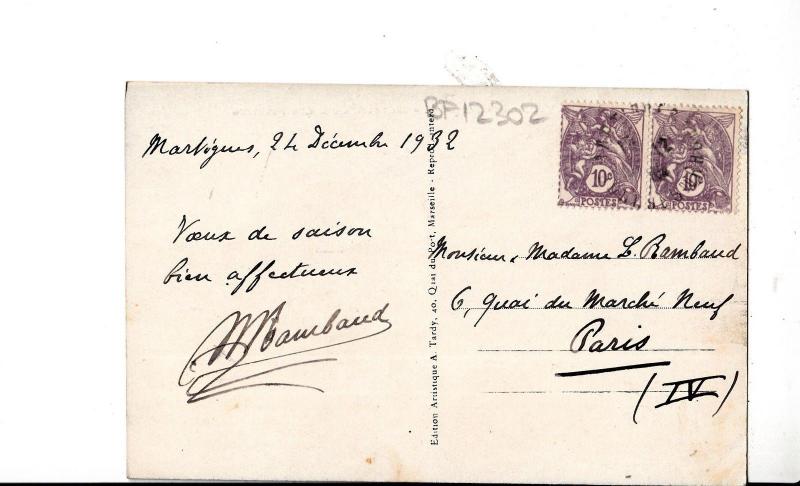 BF12302
Martigues, 24 Décembre 1932
Vœux de saison
bien affectueux
Rambaud
Edition Artistique A. Tardy, 40, Quai du Port, Marseille - Reprod. interd.
10c
POSTES
10c
POSTES
Monsieur, Madame L. Rambaud
6, Quai du Marché Neuf
Paris
(IV)